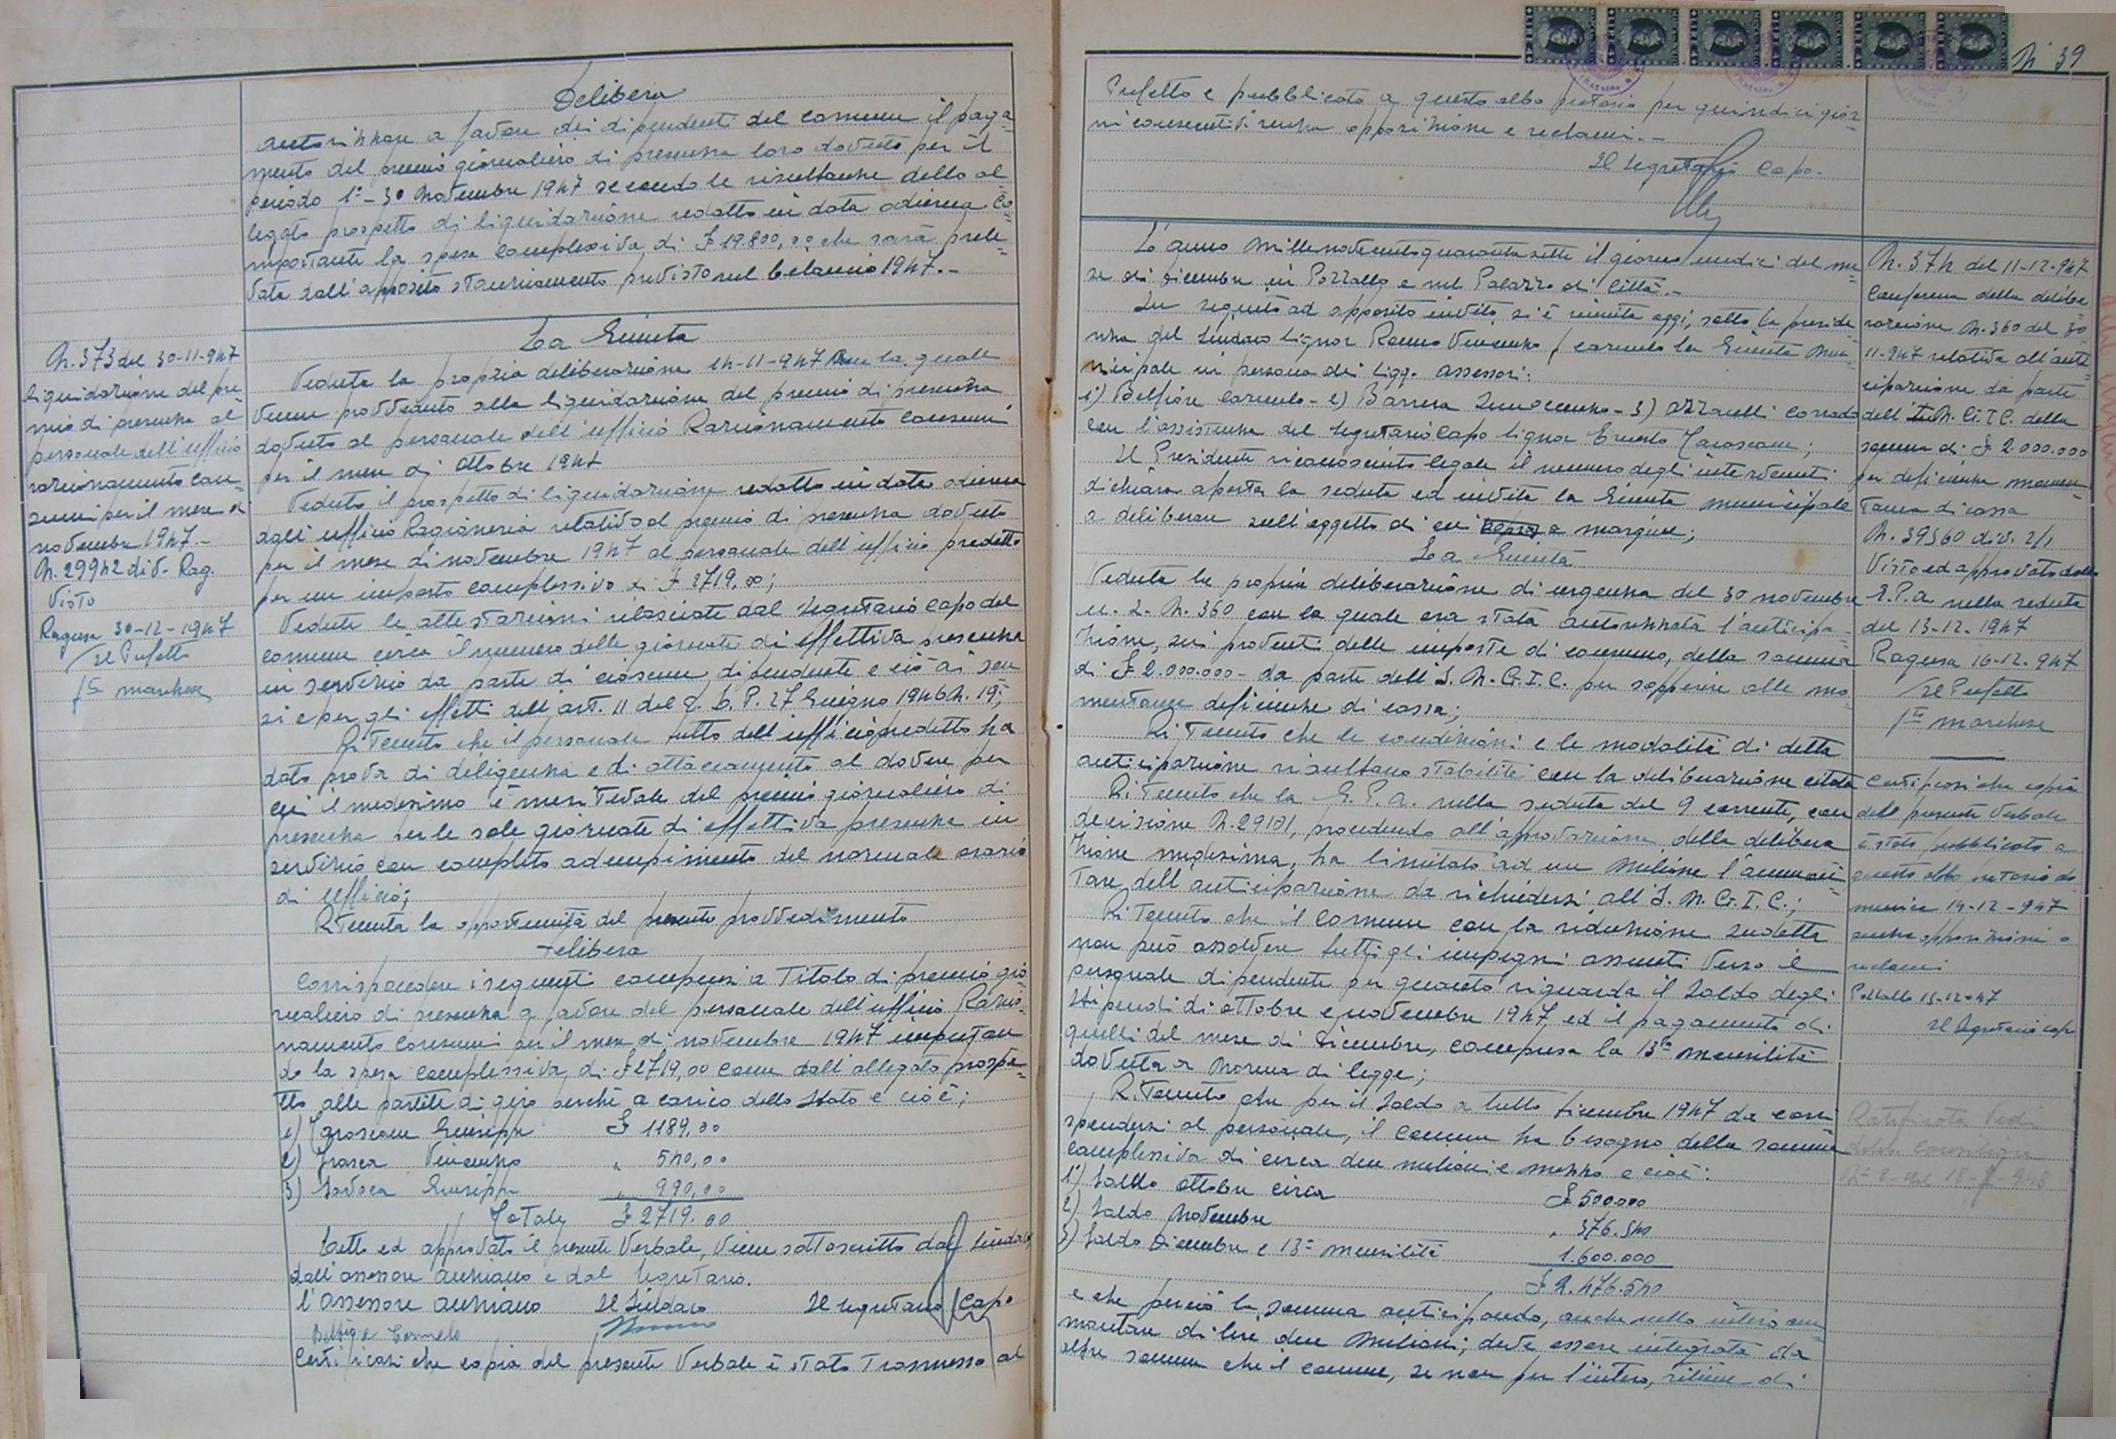 Delibera
autorizzare a favore dei dipendenti del comune il paga=
mento del premio giornaliero di presenza loro dovuto per il
periodo 1° - 30 Novembre 1947 secondo le risultanze dello al
legato prospetto di liquidazione redatto in data odierna co
importante la spesa complessiva di £ 19.800,00 che sarà prele=
vata dall'apposito stanziamento previsto nel bilancio 1947.-
N. 373 del 30-11-947
liquidazione del pre
mio di presenza al
personale dell'ufficio
razionamento con=
sumi per il mese di
novembre 1947.-
N. 29942 div. Rag.
Visto
Ragusa 30-12-1947
Il Prefetto
f.to marchese
La Giunta
Veduta la propria deliberazione 14-11-947 con la quale
venne provveduto alla liquidazione del premio di presenza
dovuto al personale dell'ufficio Razionamento consumi
per il mese di Ottobre 1947
Veduto il prospetto di liquidazione redatto in data odierna
dall'ufficio Ragioneria relativo al premio di presenza dovuto
per il mese di novembre 1947 al personale dell'ufficio predetto
per un importo complessivo di £ 2719,00;
Vedute le attestazioni rilasciate dal Segretario capo del
comune circa il numero delle giornate di effettiva presenza
in servizio da parte di ciascun dipendente e ciò ai sen
si e per gli effetti dell'art. 11 del D. L. P. 27 Giugno 1946 N. 19;
Ritenuto che il personale tutto dell'ufficio predetto ha
dato prova di diligenza e di attaccamento al dovere per
cui il medesimo è meritevole del premio giornaliero di
presenza per le sole giornate di effettiva presenza in
servizio con completo adempimento del normale orario
di ufficio;
Ritenuta la opportunità del presente provvedimento
Delibera
Corrispondere i seguenti compensi a titolo di premio gio
rnaliero di presenza a favore del personale dell'ufficio Razio=
namento Consumi per il mese di novembre 1947 imputan
do la spesa complessiva di £ 2719,00 come dall'allegato prospe=
tto alle partite di giro perché a carico dello Stato e cioè;
1) Giuseppe £ 1189,00
2) Frasca Vincenzo " 540,00
3) Savoca Giuseppe " 990,00
Totale £ 2719.00
Letto ed approvato il presente Verbale, viene sottoscritto dal Sindaco,
dall'assessore anziano e dal Segretario.
L'assessore anziano Il Sindaco Il Segretario Capo
Belfiore Carmelo
Certificasi che copia del presente Verbale è stato trasmesso al
N 39
Prefetto e pubblicato a questo albo pretorio per quindici gior=
ni consecutivi senza opposizione e reclami.-
Il Segretario Capo.
L'anno Millenovecentoquarantasette il giorno undici del me=
se di Dicembre in Pozzallo e nel Palazzo di Città.-
In seguito ad apposito invito si è riunita oggi, sotto la preside=
nza del Sindaco Signor Vincenzo la Giunta mu=
nicipale in persona dei Sigg. assessori:
1) Belfiore Carmelo - 2) Barrera Innocenzo - 3) Azzarelli Corrado
con l'assistenza del Segretario Capo Signor
Il Presidente riconosciuto legale il numero degli intervenuti
dichiara aperta la seduta ed invita la Giunta municipale
a deliberare sull'oggetto di cui a margine;
La Giunta
Veduta la propria deliberazione di urgenza del 30 novembre
u. s. N. 360 con la quale era stata autorizzata l'anticipa=
zione, sui proventi delle imposte di consumo, della somma
di £ 2.000.000- da parte dell'I. N. G. I. C. per sopperire alle mo
mentanee deficienze di cassa;
Ritenuto che le condizioni e le modalità di detta
anticipazione risultano stabilite con la deliberazione citata
Ritenuto che la G. P. A. nella seduta del 9 corrente, con
decisione N. 29101, procedendo all'approvazione della delibera
zione medesima, ha limitato ad un milione l'ammon=
tare dell'anticipazione da richiedersi all'I. N. G. I. C.;
Ritenuto che il Comune con la riduzione sudetta
non può assolvere tutti gli impegni assunti verso il
personale dipendente per quanto riguarda il saldo degli
stipendi di ottobre e novembre 1947, ed il pagamento di
quelli del mese di Dicembre, compresa la 13ª mensilità
dovuta a norma di legge;
Ritenuto che per il saldo a tutto Dicembre 1947 da corri
spondersi al personale, il Comune ha bisogno della somma
complessiva di circa due milioni e mezzo e cioè:
1) Saldo ottobre circa £ 500.000
2) Saldo Novembre " 376.540
3) Saldo Dicembre e 13ª mensilità 1.600.000
£ 2.476.540
e che perciò la somma anticipando, anche nello intero am=
montare di lire due milioni, deve essere integrata da
altre somme che il comune, se non per l'intero, ritiene di
N. 374 del 11-12-947
Conferma della delibe
razione N. 360 del 30
11-947 relativa all'anti=
cipazione da parte
dell' I.N.G.I.C. della
somma di £ 2.000.000
per deficienza momen=
tanea di cassa
N. 39360 div. 2/1
Visto ed approvato dalla
G.P.A. nella seduta
del 13-12-1947
Ragusa 16-12-947
Il Prefetto
f.to marchese
Certificasi che copia
del presente verbale
è stato pubblicato a
questo albo pretorio do
menica 14-12-947
senza opposizioni o
reclami
Pozzallo 15-12-47
Il Segretario capo
Ratificata Vedi